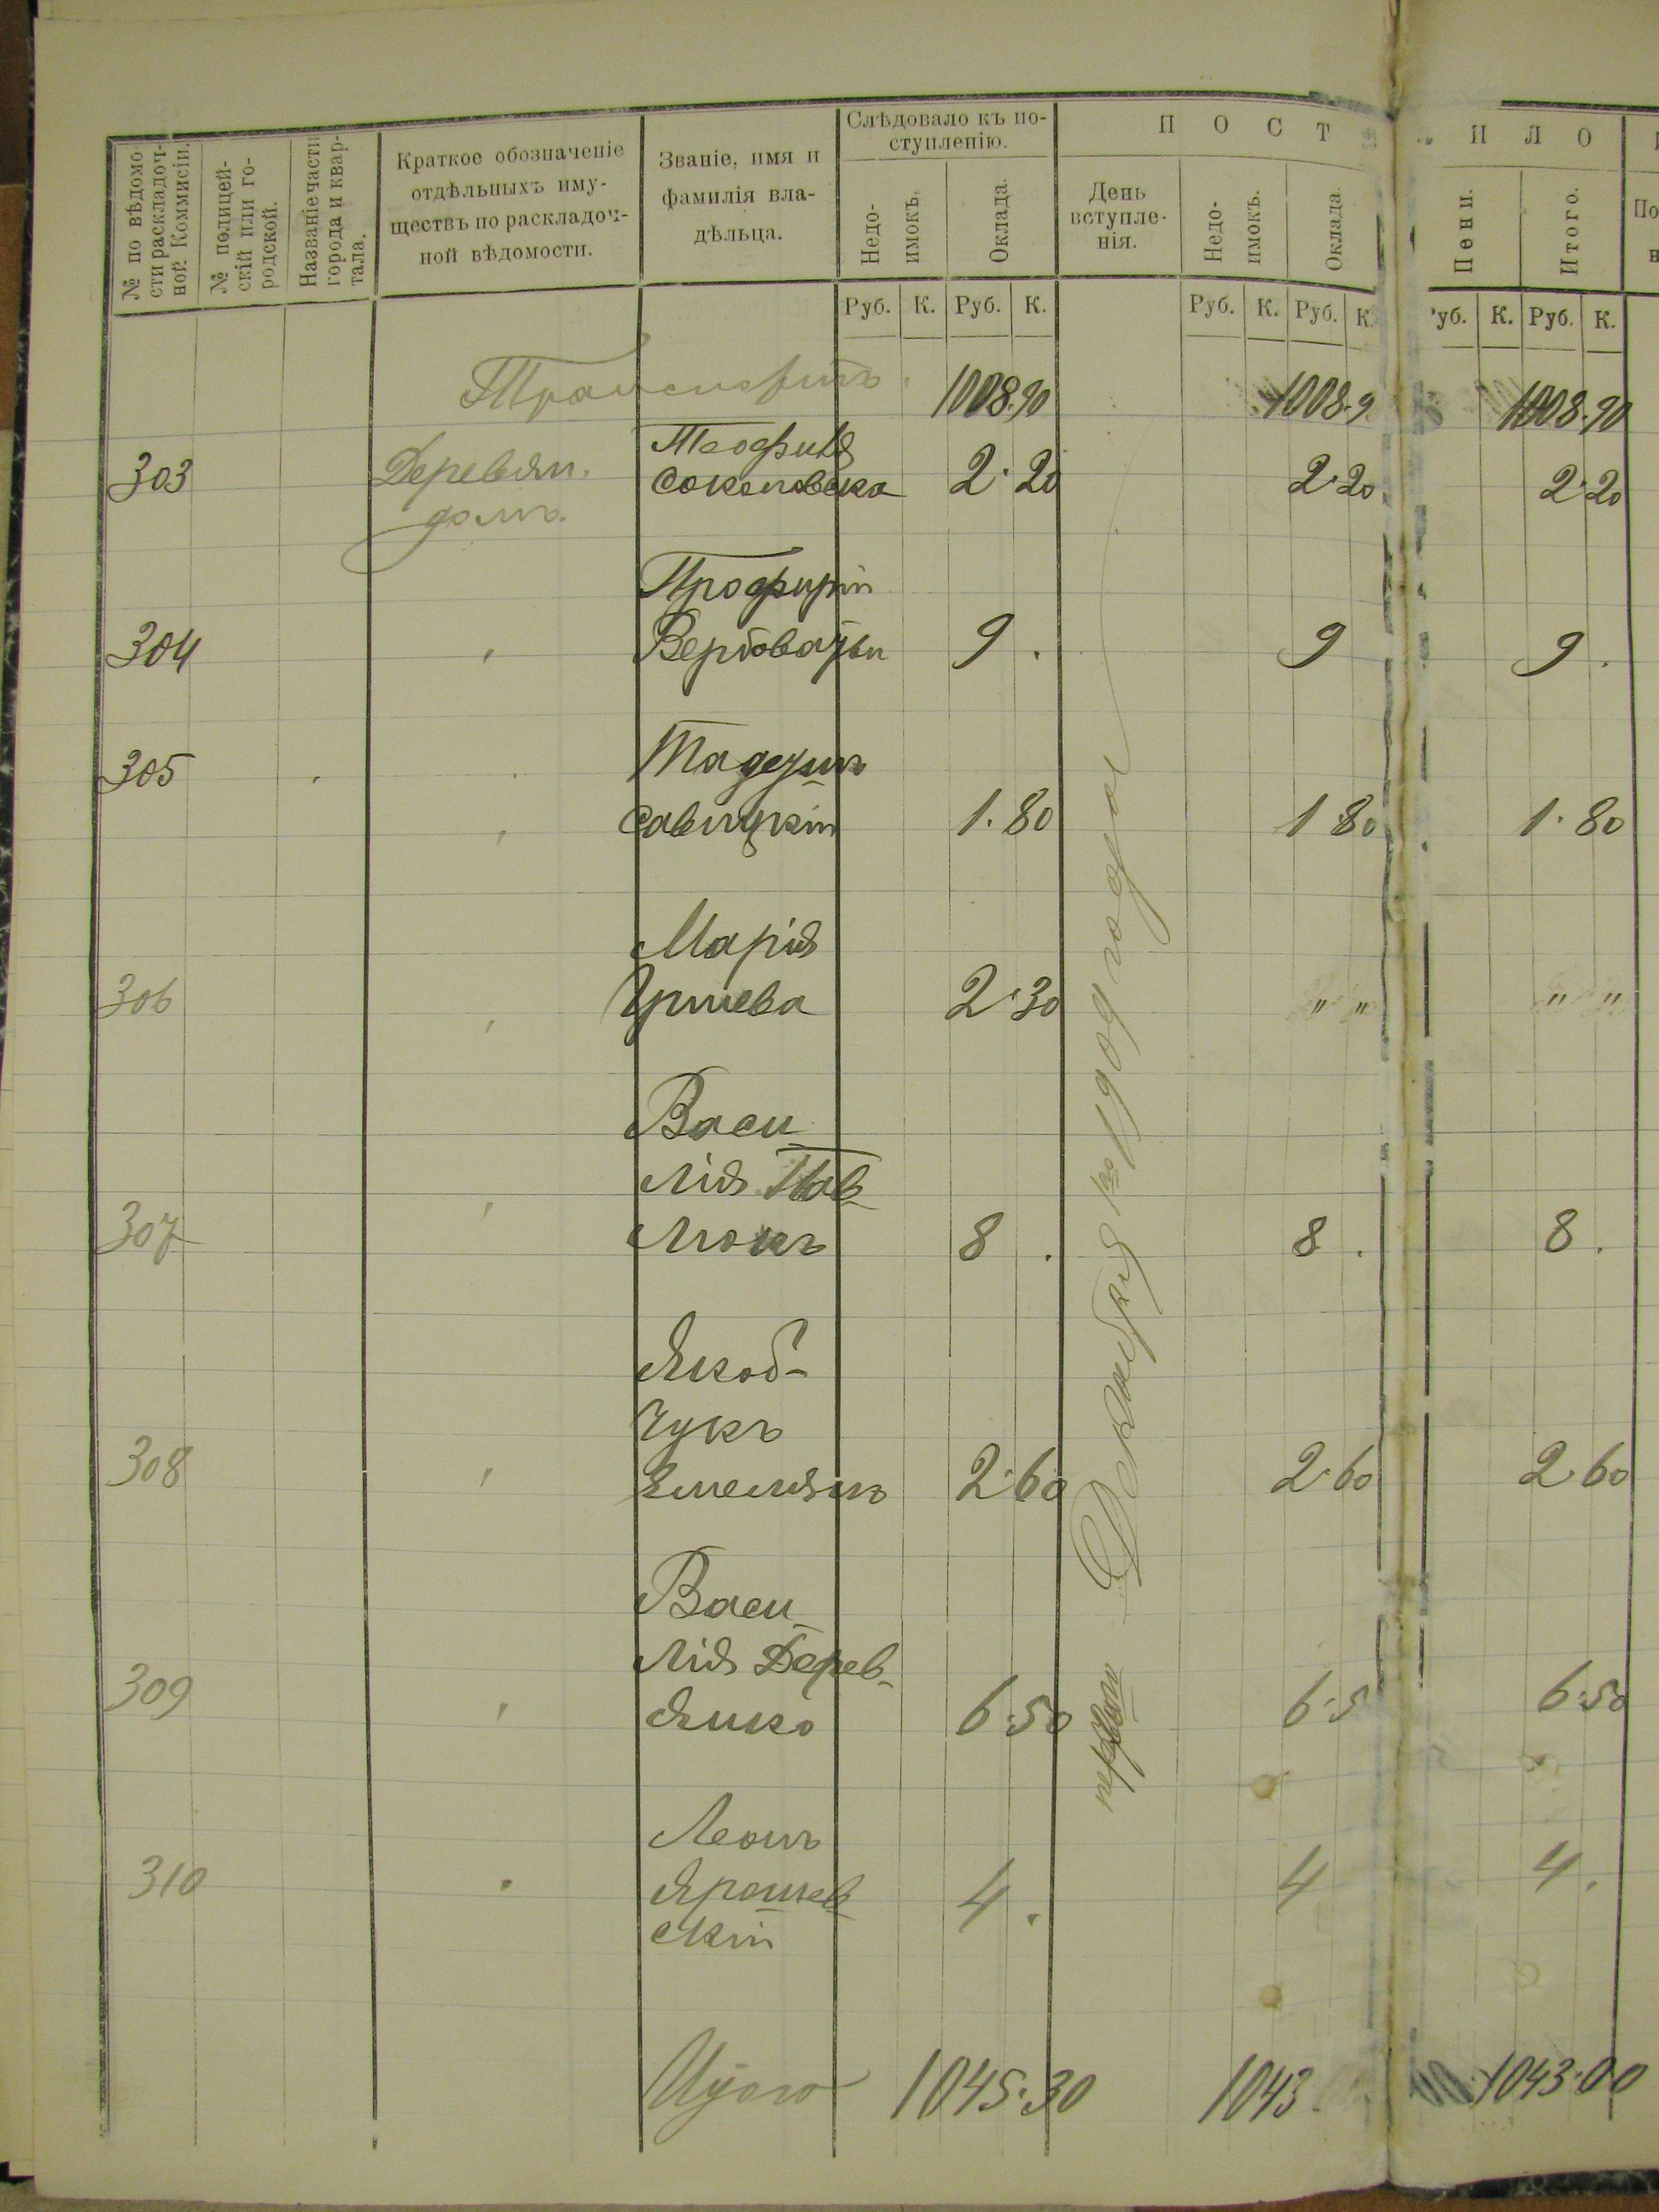 № по вѣдомо-
сти раскладоч-
ной Коммисіи.
№ полицей-
скій или го-
родской.
Названіе части
города и квар-
тала.
Краткое обозначеніе
отдѣльныхъ иму-
ществъ по раскладоч-
ной вѣдомости.
Званіе, имя и
фамилія вла-
дѣльца.
Слѣдовало къ по-
ступленію.
Недо-
имокъ.
Оклада.
П О С Т
День
вступле-
нія.
Недо-
имокъ.
Оклада
И Л О
Пени.
Итого.
Руб. К. Руб. К. Руб. К. Руб. К. уб. К. Руб. К.
Транспортъ 1008.90 1008.9 1008.90
303 Деревян. домъ. Теофиля Соколовска 2.20 2.20 2.20
304 Профирій 9. 9 9.
305 Тадеушъ Савицкій 1.80 1.80 1.80
306 Марія 2.30 " " " "
307 Васи
лія Пав
люкъ 8. 8. 8.
308 Якоб-
чукъ
Емельянъ 2.60 2.60 2.60
309 Васи
лія Дерев-
янко 6.50 6.5 6.50
310 Леонъ
Ярошев
скій 4. 4 4.
первого Декабря 1909 года
Итого 1045.30 1043. 1043.00